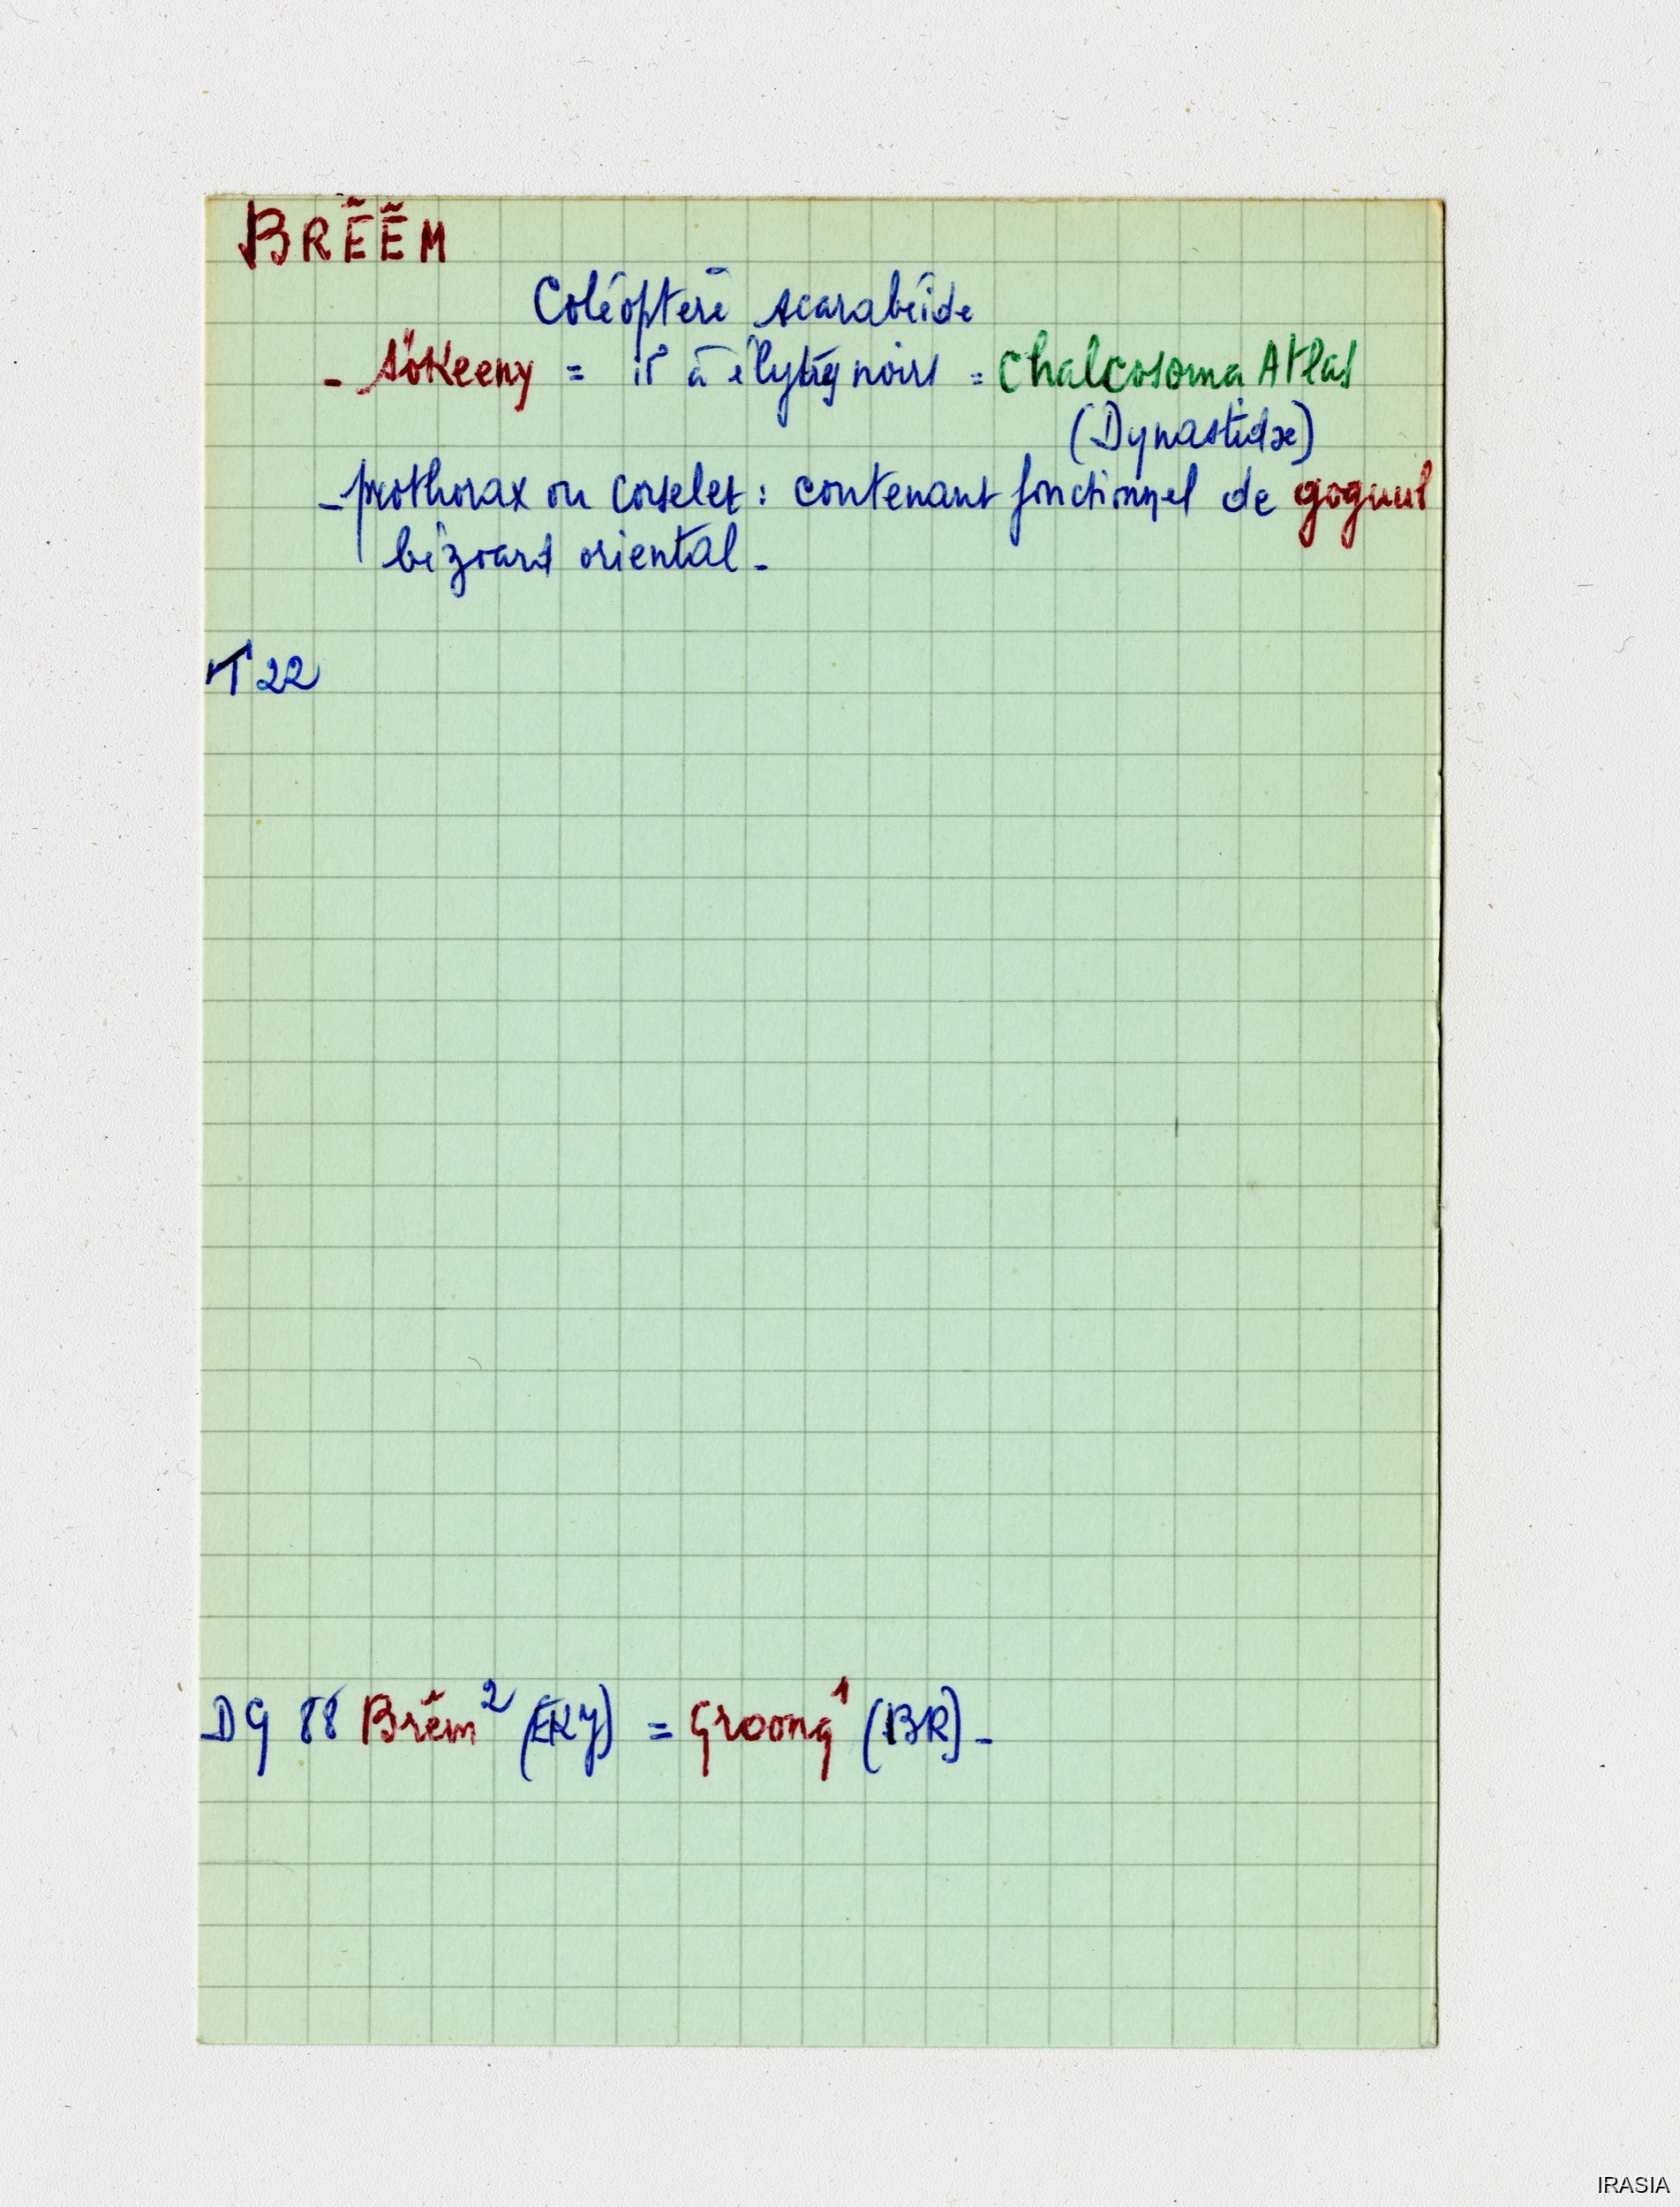 BRẼẼM
Coléoptère scarabéide
- sŏkeeny = id à élytres noirs = Chalcosoma Atlas
(Dynastidæ)
- prothorax ou corselet : contenant fonctionnel de
bézoard oriental -
T 22
DG 88 Brêm² (EKY) = Groong¹ (BR) -
IRASIA